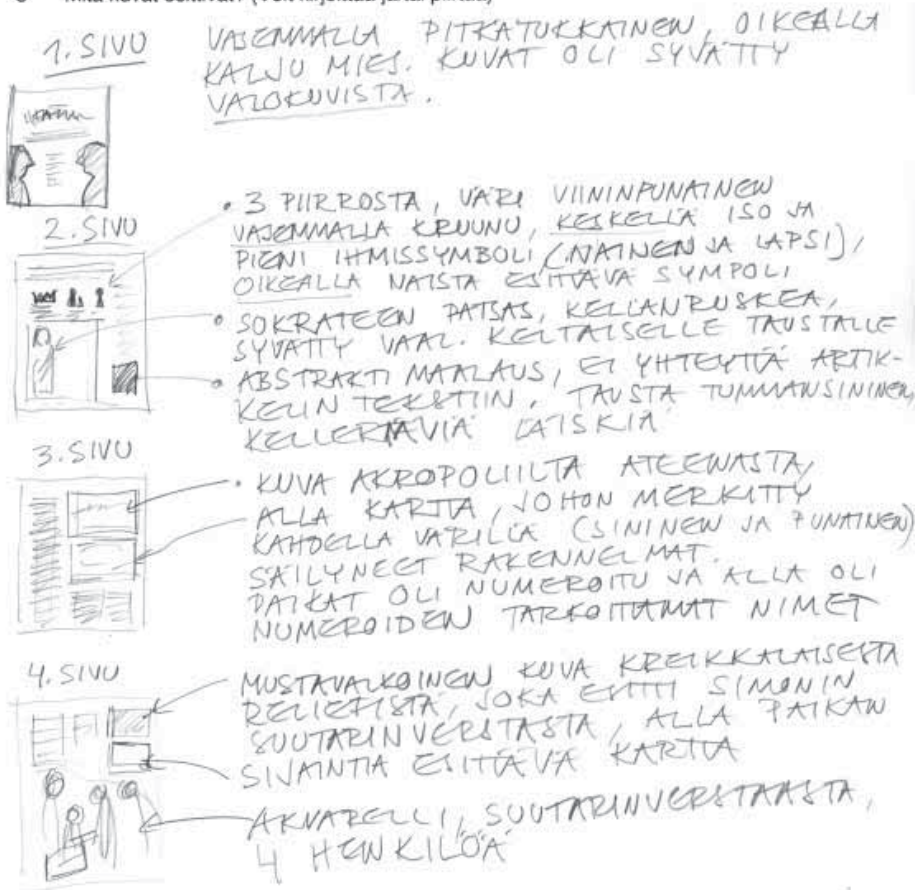 Mitä kuvat esittivät? (Voit kirjoittaa ja/tai piirtää)
1. SIVU
VASEMMALLA PITKÄTUKKAINEN, OIKEALLA
KALJU MIES. KUVAT OLI SYVÄTTY
VALOKUVISTA.
2. SIVU
• 3 PIIRROSTA, VÄRI VIININPUNAINEN
VASEMMALLA KRUUNU, KESKELLÄ ISO JA
PIENI IHMISSYMBOLI (NAINEN JA LAPSI),
OIKEALLA NAISTA ESITTÄVÄ SYMPOLI
• SOKRATEEN PATSAS, KELLANRUSKEA,
SYVÄTTY VAAL. KELTAISELLE TAUSTALLE
• ABSTRAKTI MAALAUS, EI YHTEYTTÄ ARTIK-
KELIN TEKSTIIN. TAUSTA TUMMANSININEN,
KELLERTÄVIÄ LÄISKIÄ
3. SIVU
• KUVA AKROPOLIILTA ATEENASTA,
ALLA KARTTA, JOHON MERKITTY
KAHDELLA VÄRILLÄ (SININEN JA PUNAINEN)
SÄILYNEET RAKENNELMAT.
PAIKAT OLI NUMEROITU JA ALLA OLI
NUMEROIDEN TARKOITTAMAT NIMET
4. SIVU
MUSTAVALKOINEN KUVA KREIKKALAISESTA
RELIEFISTÄ, JOKA ESITTI SIMONIN
SUUTARINVERSTASTA, ALLA PAIKAN
SIJAINTIA ESITTÄVÄ KARTTA
AKVARELLI, SUUTARINVERSTAASTA,
4 HENKILÖÄ